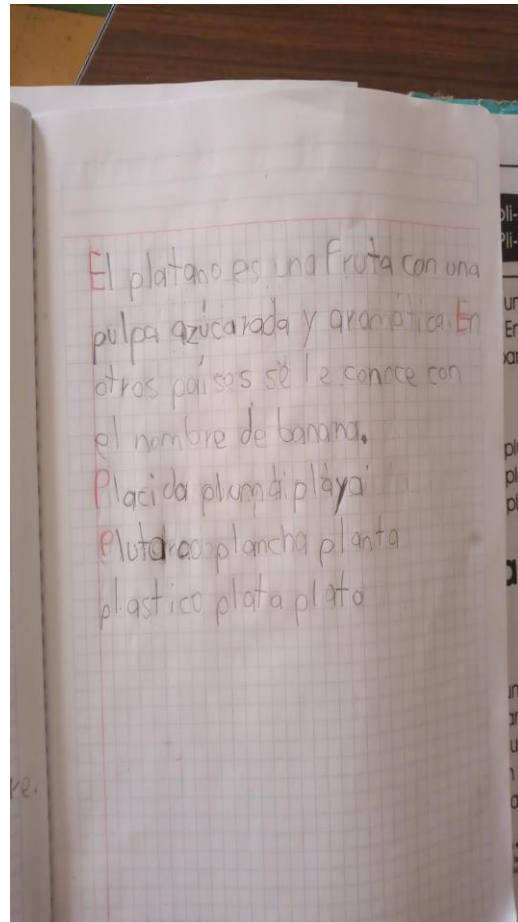 El platano es una Fruta con una
pulpa azúcarada y aromática. En
otros países se le conoce con
el nombre de banana.
Placida pluma playa
Plutarco plancha planta
plastico plata plato
re.